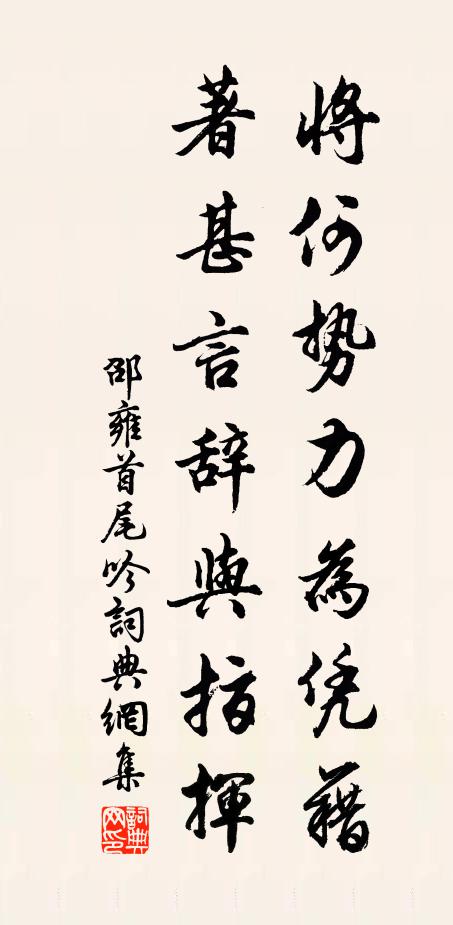 將何势力為凭藉
著甚言辞與指揮
邵雍首尾吟詞典網集
詞典网印